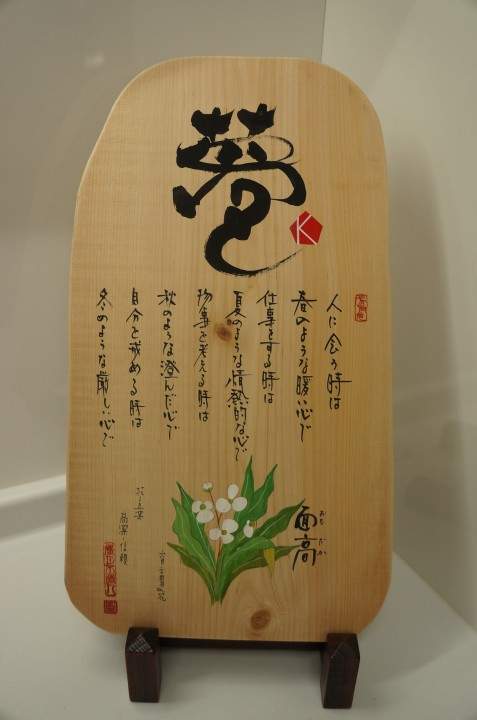 夢
K
人に会う時は
春のような暖い心で
仕事をする時は
夏のような情熱的な心で
物事を考える時は
秋のような澄んだ心で
自分を戒める時は
冬のような厳しい心で
面高
おもだか
花言葉
高潔・信頼